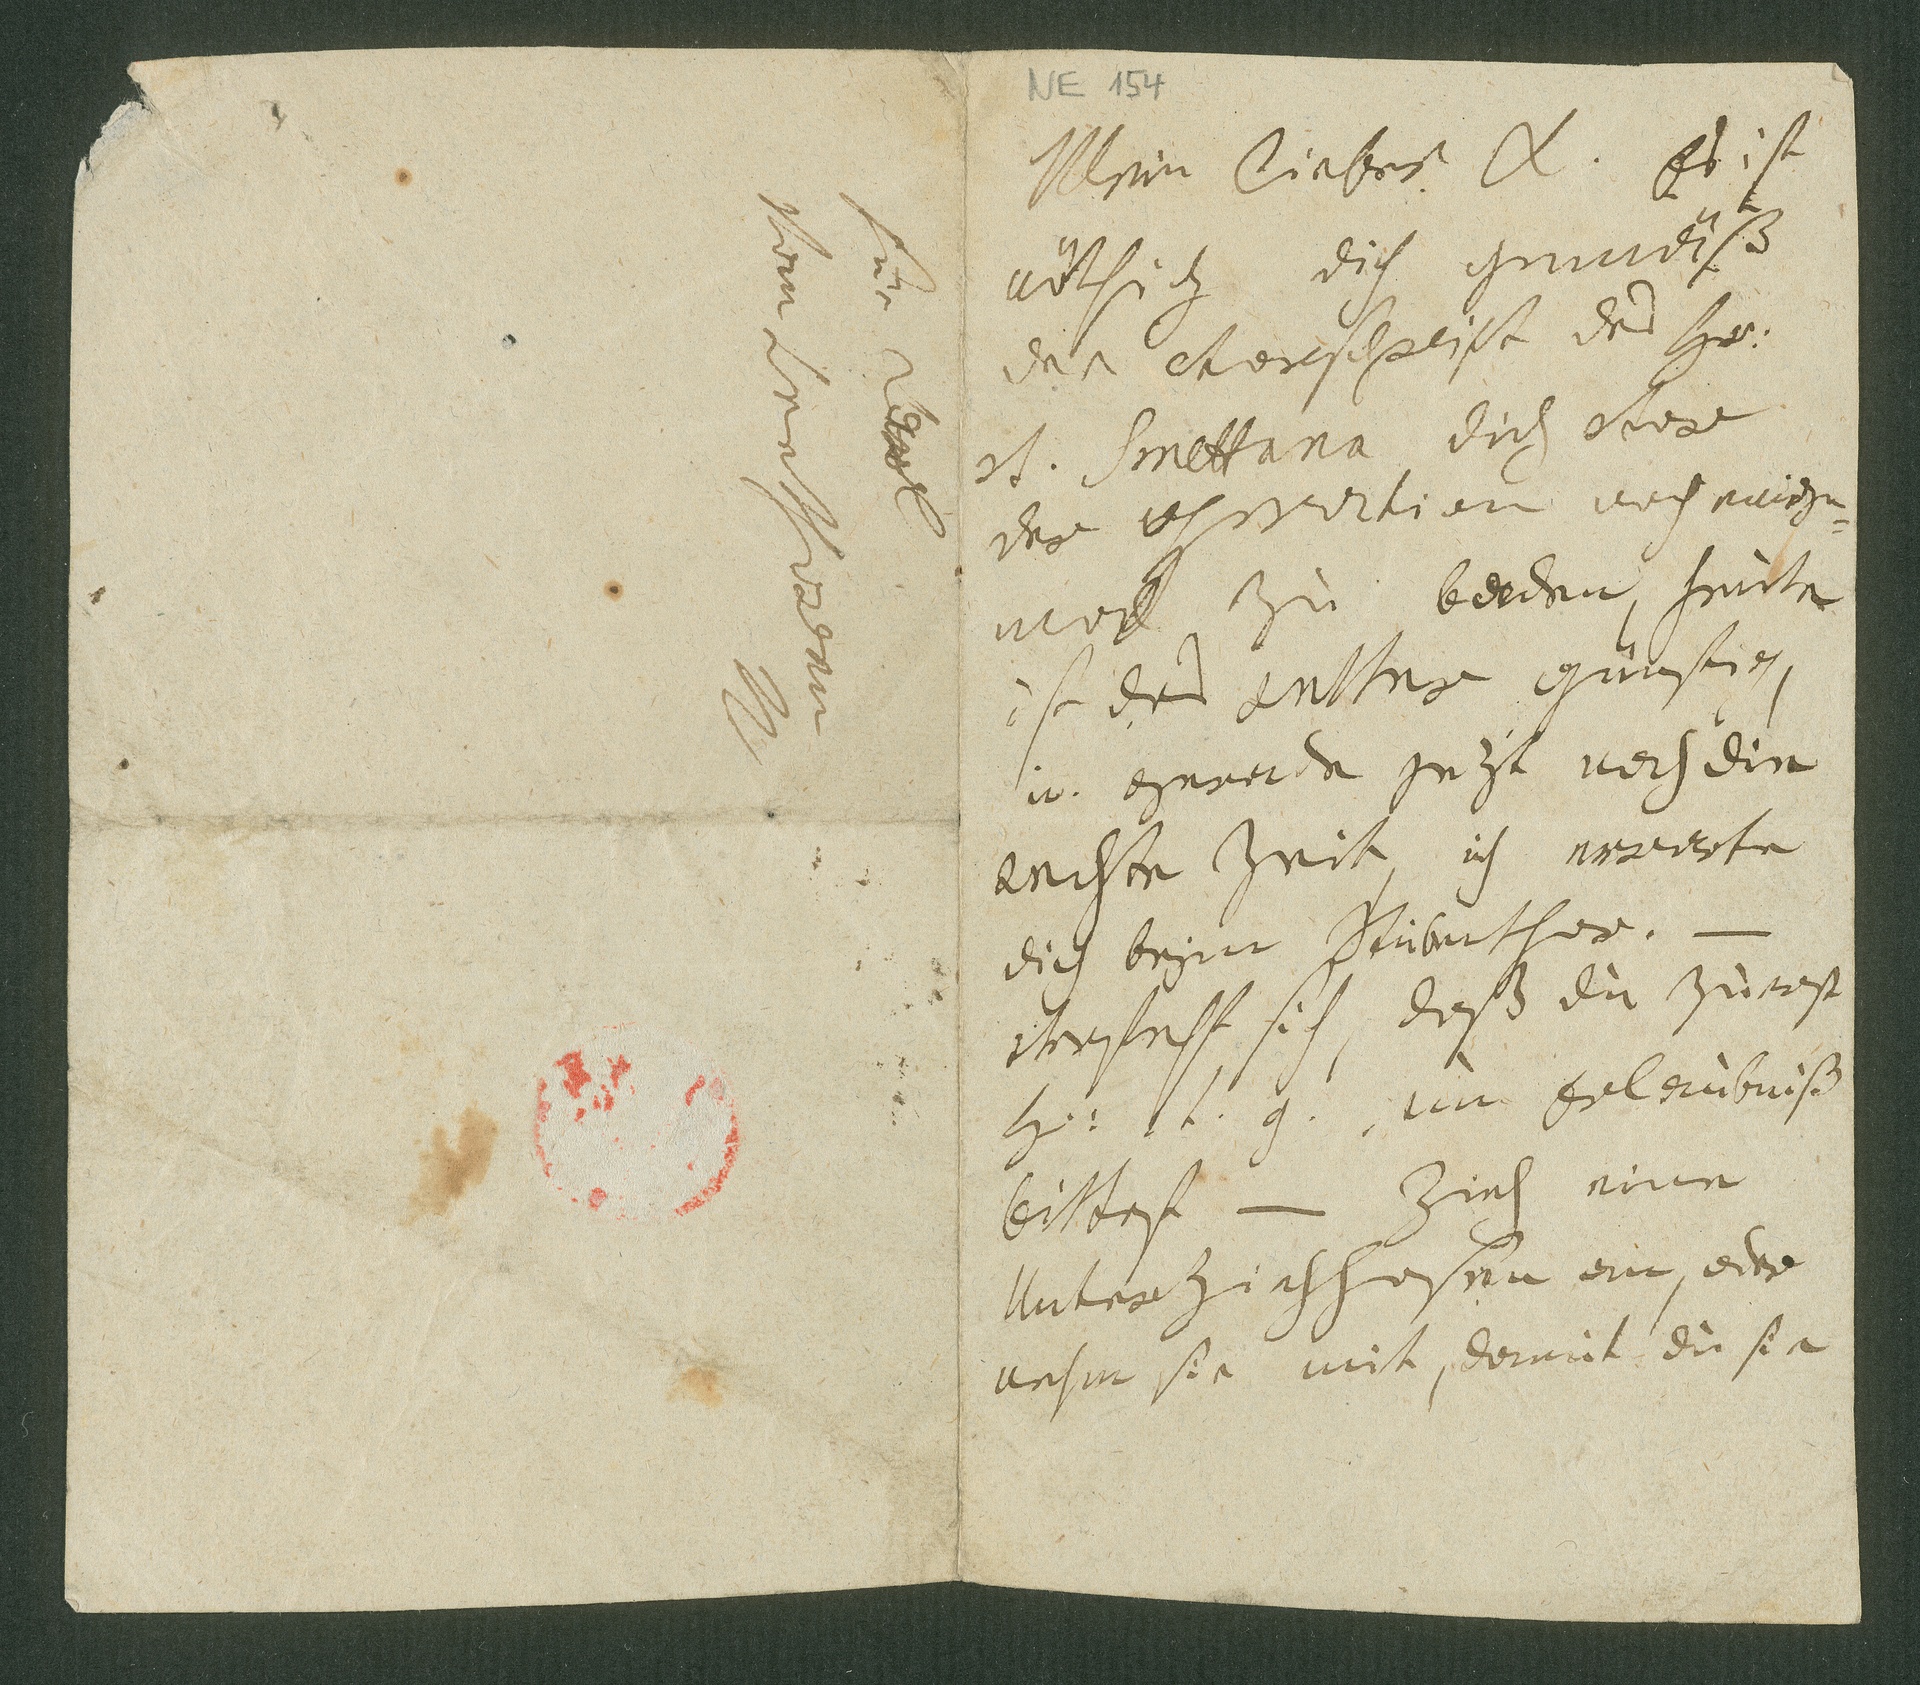 für Karl
von Beethowen
NE 154
Mein lieber K. Es ist
nöthig dich gemäß
der Vorschrift des Hr:
v. Smettana dich vor
der operation noch einige=
mal zu baden, heute
ist das wetter günstig,
u. gerade jezt noch die
rechte Zeit, ich erwarte
dich beym Stubenthor. —
versteht sich, daß du zuerst
H: v. g. um Erlaubniß
bittest — Zieh eine
Unterziehhosen an, oder
nehm sie mit, damit du sie